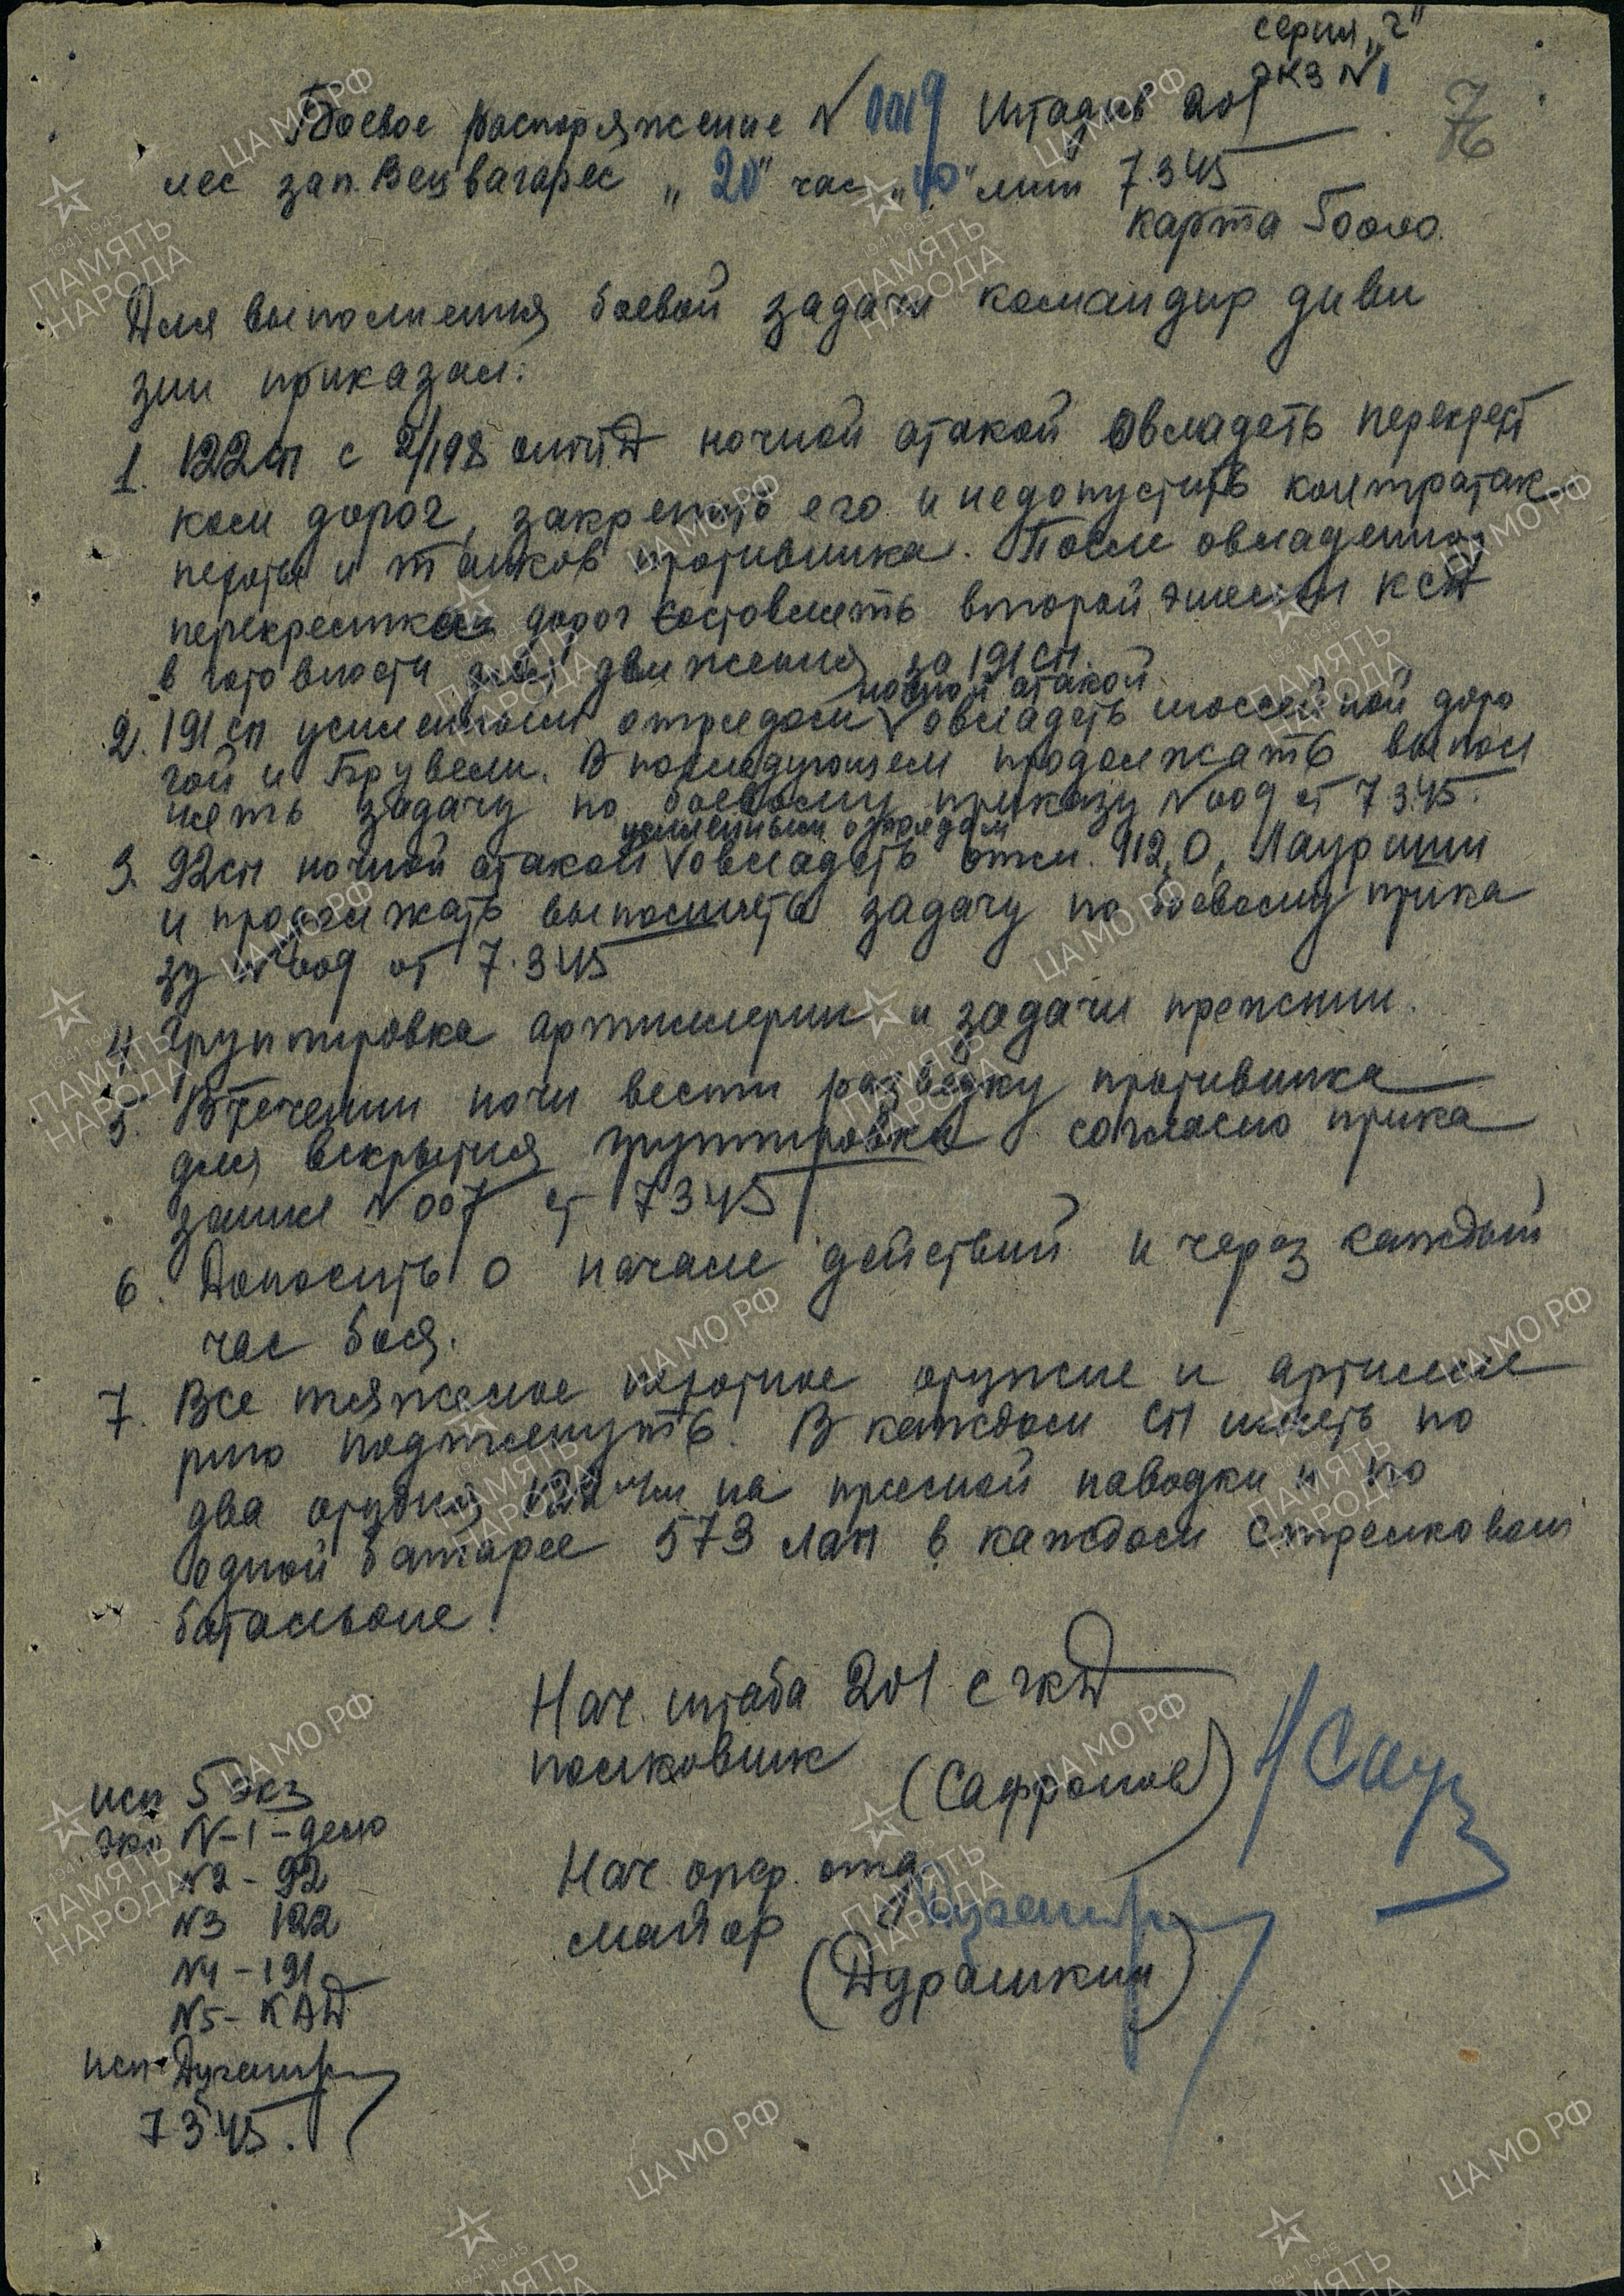 серия "г"
экз № 1
Боевое распоряжение № 0019 Штадив 201
76
лес зап. Вецвагарес "20" час "40" мин 7.3.45
карта 50000.
Для выполнения боевой задачи командир диви
зии приказал:
1. 122 сп с 2/198 омпд ночной атакой овладеть перекрест
ком дорог, закрепить его и недопустить контратак
пехоты и танков противника. После овладения
перекрестком дорог составлять второй эшелон КСД
в готовности для движения за 191 сп.
ночной атакой
2. 191 сп усиленным отрядом овладеть шоссейной доро
гой и Брувели. В последующем продолжать выпол
нять задачу по боевому приказу № 009 от 7.3.45.
усиленным отрядом
3. 92 сп ночной атакой овладеть отм. 112,0, Лаурини
и продолжать выполнять задачу по боевому прика
зу № 009 от 7.3.45
4. Группировка артиллерии и задачи прежнии.
5. В течении ночи вести разведку противника
для вскрытия группировки согласно прика
зания № 007 от 7.3.45
6. Доносить о начале действий и через каждый
час боя.
7. Все тяжелое пехотное оружие и артилле
рию подтянуть. В каждом СП иметь по
два орудия 122 мм на прямой наводки и по
одной батарее 573 лап в каждом стрелковом
батальоне.
Нач. штаба 201 сгкд
полковник
(Сафронов)
Нач. опер. отд
майор
(Дурашкин)
исп 5 экз
экз №-1-дело
№2-92
№3 122
№4-191
№5-КАД
исп.
7.3.45.
ЦА МО РФ
1941-1945
ПАМЯТЬ
НАРОДА